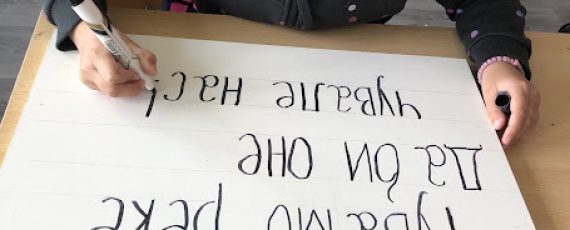 Чувамо реке
да би оне
чувале нас!